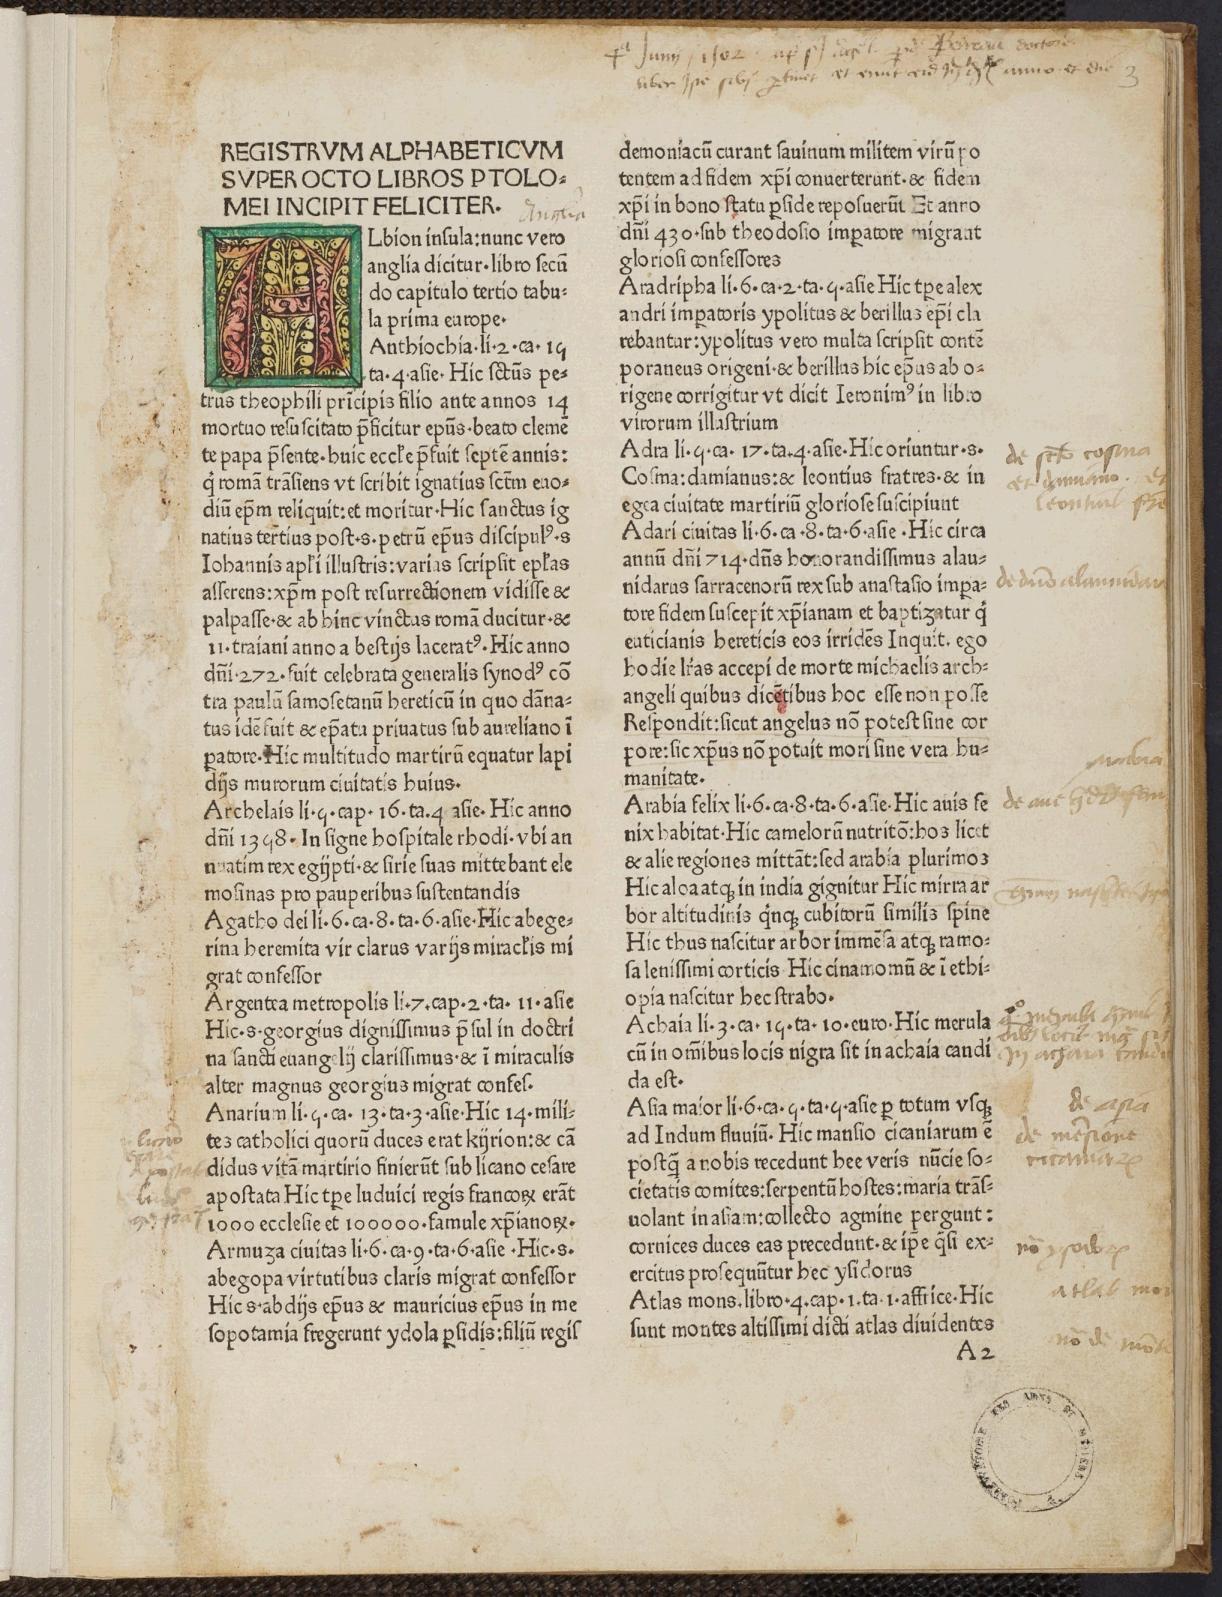 REGISTRVM ALPHABETICVM
SVPER OCTO LIBROS PTOLO⸗
MEI INCIPIT FELICITER.
Anglia
ALbion insula:nunc vero
anglia dicitur·libro secũ
do capitulo tertio tabu⸗
la prima europe·
Anthiochia·li·2·ca·19
ta·4·asie· Hic sctũs pe⸗
trus theophili prĩcipis filio ante annos 14
mortuo resuscitato p̃ficitur epũs·beato clemẽ
te papa p̃sente·huic eccľe p̃fuit septẽ annis:
q̇ romã trãsiens vt scribit ignatius sctm̃ euo⸗
diũ ep̃m reliquit:et moritur·Hic sanctus ig
natius tertius post·s·petrũ ep̃us discipulꝰ·s
Iohannis apľi illustris:varias scripsit epľas
asserens:xp̃m post resurrectionem vidisse &
palpasse·& ab hinc vinctus romã ducitur·&
11·traiani anno a bestijs laceratꝰ·Hic anno
dñi·272·fuit celebrata generalis synodꝰ cõ
tra paulũ samosetanũ hereticũ in quo dãna⸗
tus idẽ fuit & ep̃atu priuatus sub aureliano ĩ
patore·Hic multitudo martirũ equatur lapi
dijs murorum ciuitatis huius·
Archelais li·9·cap·16·ta·4 asie·Hic anno
dñi 1398·In signe hospitale rhodi·vbi an
nuatim rex egijpti·& sirie suas mittebant ele
mosinas pro pauperibus sustentandis
Agatho dei li·6·ca·8·ta·6·asie·Hic abege⸗
rina heremita vir clarus varijs miracľis mi
grat confessor
Argentea metropolis li·7·cap·2·ta·11·asie
Hic·s·georgius dignissimus p̃sul in doctri
na sancti euangelij clarissimus·& ĩ miraculis
alter magnus georgius migrat confes·
Anarium li·9·ca·13·ta·3·asie·Hic 14·mili⸗
tes catholici quorũ duces erat kijrion:& cã
didus vitã martirio finierũt sub licano cesare
apostata Hic tp̃e luduici regis francoꝝ erãt
1000 ecclesie et 100000·famule xp̃ianoꝝ·
Armuza ciuitas li·6·ca·9·ta·6·asie·Hic·s·
abegopa virtutibus claris migrat confessor
Hic s·abdijs ep̃us & mauricius ep̃us in me
sopotamia fregerunt ydola ꝑsidis:filiũ regis
demoniacũ curant sauinum militem virũ po
tentem ad fidem xp̃i conuerterunt·& fidem
xp̃i in bono statu ꝑside reposuerũt Et anno
dñi 430·sub theodosio imꝑatore migrant
gloriosi confessores
Aradripha li·6·ca·2·ta·9·asie Hic tp̃e alex
andri imꝑatoris ypolitus & berillus ep̃i cla
rebantur:ypolitus vero multa scripsit contẽ
poraneus origeni·& berillus hic ep̃us ab o⸗
rigene corrigitur vt dicit Ieronimꝰ in libro
virorum illustrium
Adra li·9·ca·17·ta·4·asie·Hic oriuntur·s·
Cosma:damianus:& leontius fratres·& in
egea ciuitate martiriũ gloriose suscipiunt
Adari ciuitas li·6·ca·8·ta·6·asie·Hic circa
annũ dñi 714·dñs honorandissimus alau⸗
nidarus sarracenorũ rex sub anastasio imꝑa⸗
tore fidem suscepit xp̃ianam et baptizatur q̇
euticianis hereticis eos irridẽs Inquit. ego
hodie lr̃as accepi de morte michaelis arch⸗
angeli quibus dicẽtibus hoc esse non posse
Respondit:sicut angelus nõ potest sine cor
pore:sic xp̃us nõ potuit mori sine vera hu⸗
manitate·
Arabia felix li·6·ca·8·ta·6·asie·Hic auis fe
nix habitat·Hic camelorũ nutritõ:hos licet
& alie regiones mittãt:sed arabia plurimos
Hic aloa atqꝫ in india gignitur Hic mirra ar
bor altitudinis q̇nqꝫ cubitorũ similis spine
Hic thus nascitur arbor immẽsa atqꝫ ramo⸗
sa lenissimi corticis Hic cinamomũ & ĩ ethi⸗
opia nascitur hec strabo·
Achaia li·3·ca·19·ta·10·euro·Hic merula
cũ in om̃ibus locis nigra sit in achaia candi
da est·
Asia maior li·6·ca·9·ta·9·asie ꝑ totum vsqꝫ
ad Indum fluuiũ·Hic mansio cicaniarum ẽ
postq̃ a nobis recedunt hee veris nũcie so⸗
cietatis comites:serpentũ hostes:maria trãs⸗
uolant in asiam:collecto agmine pergunt:
cornices duces eas precedunt·& ip̃e q̃si ex⸗
ercitus prosequũtur hec ysidorus
Atlas mons.libro·4·cap·1·ta·1·affrice·Hic
sunt montes altissimi dicti atlas diuidentes
A2
3
de scto cosma
et damiano · et
de dño alaunidaro
de asia